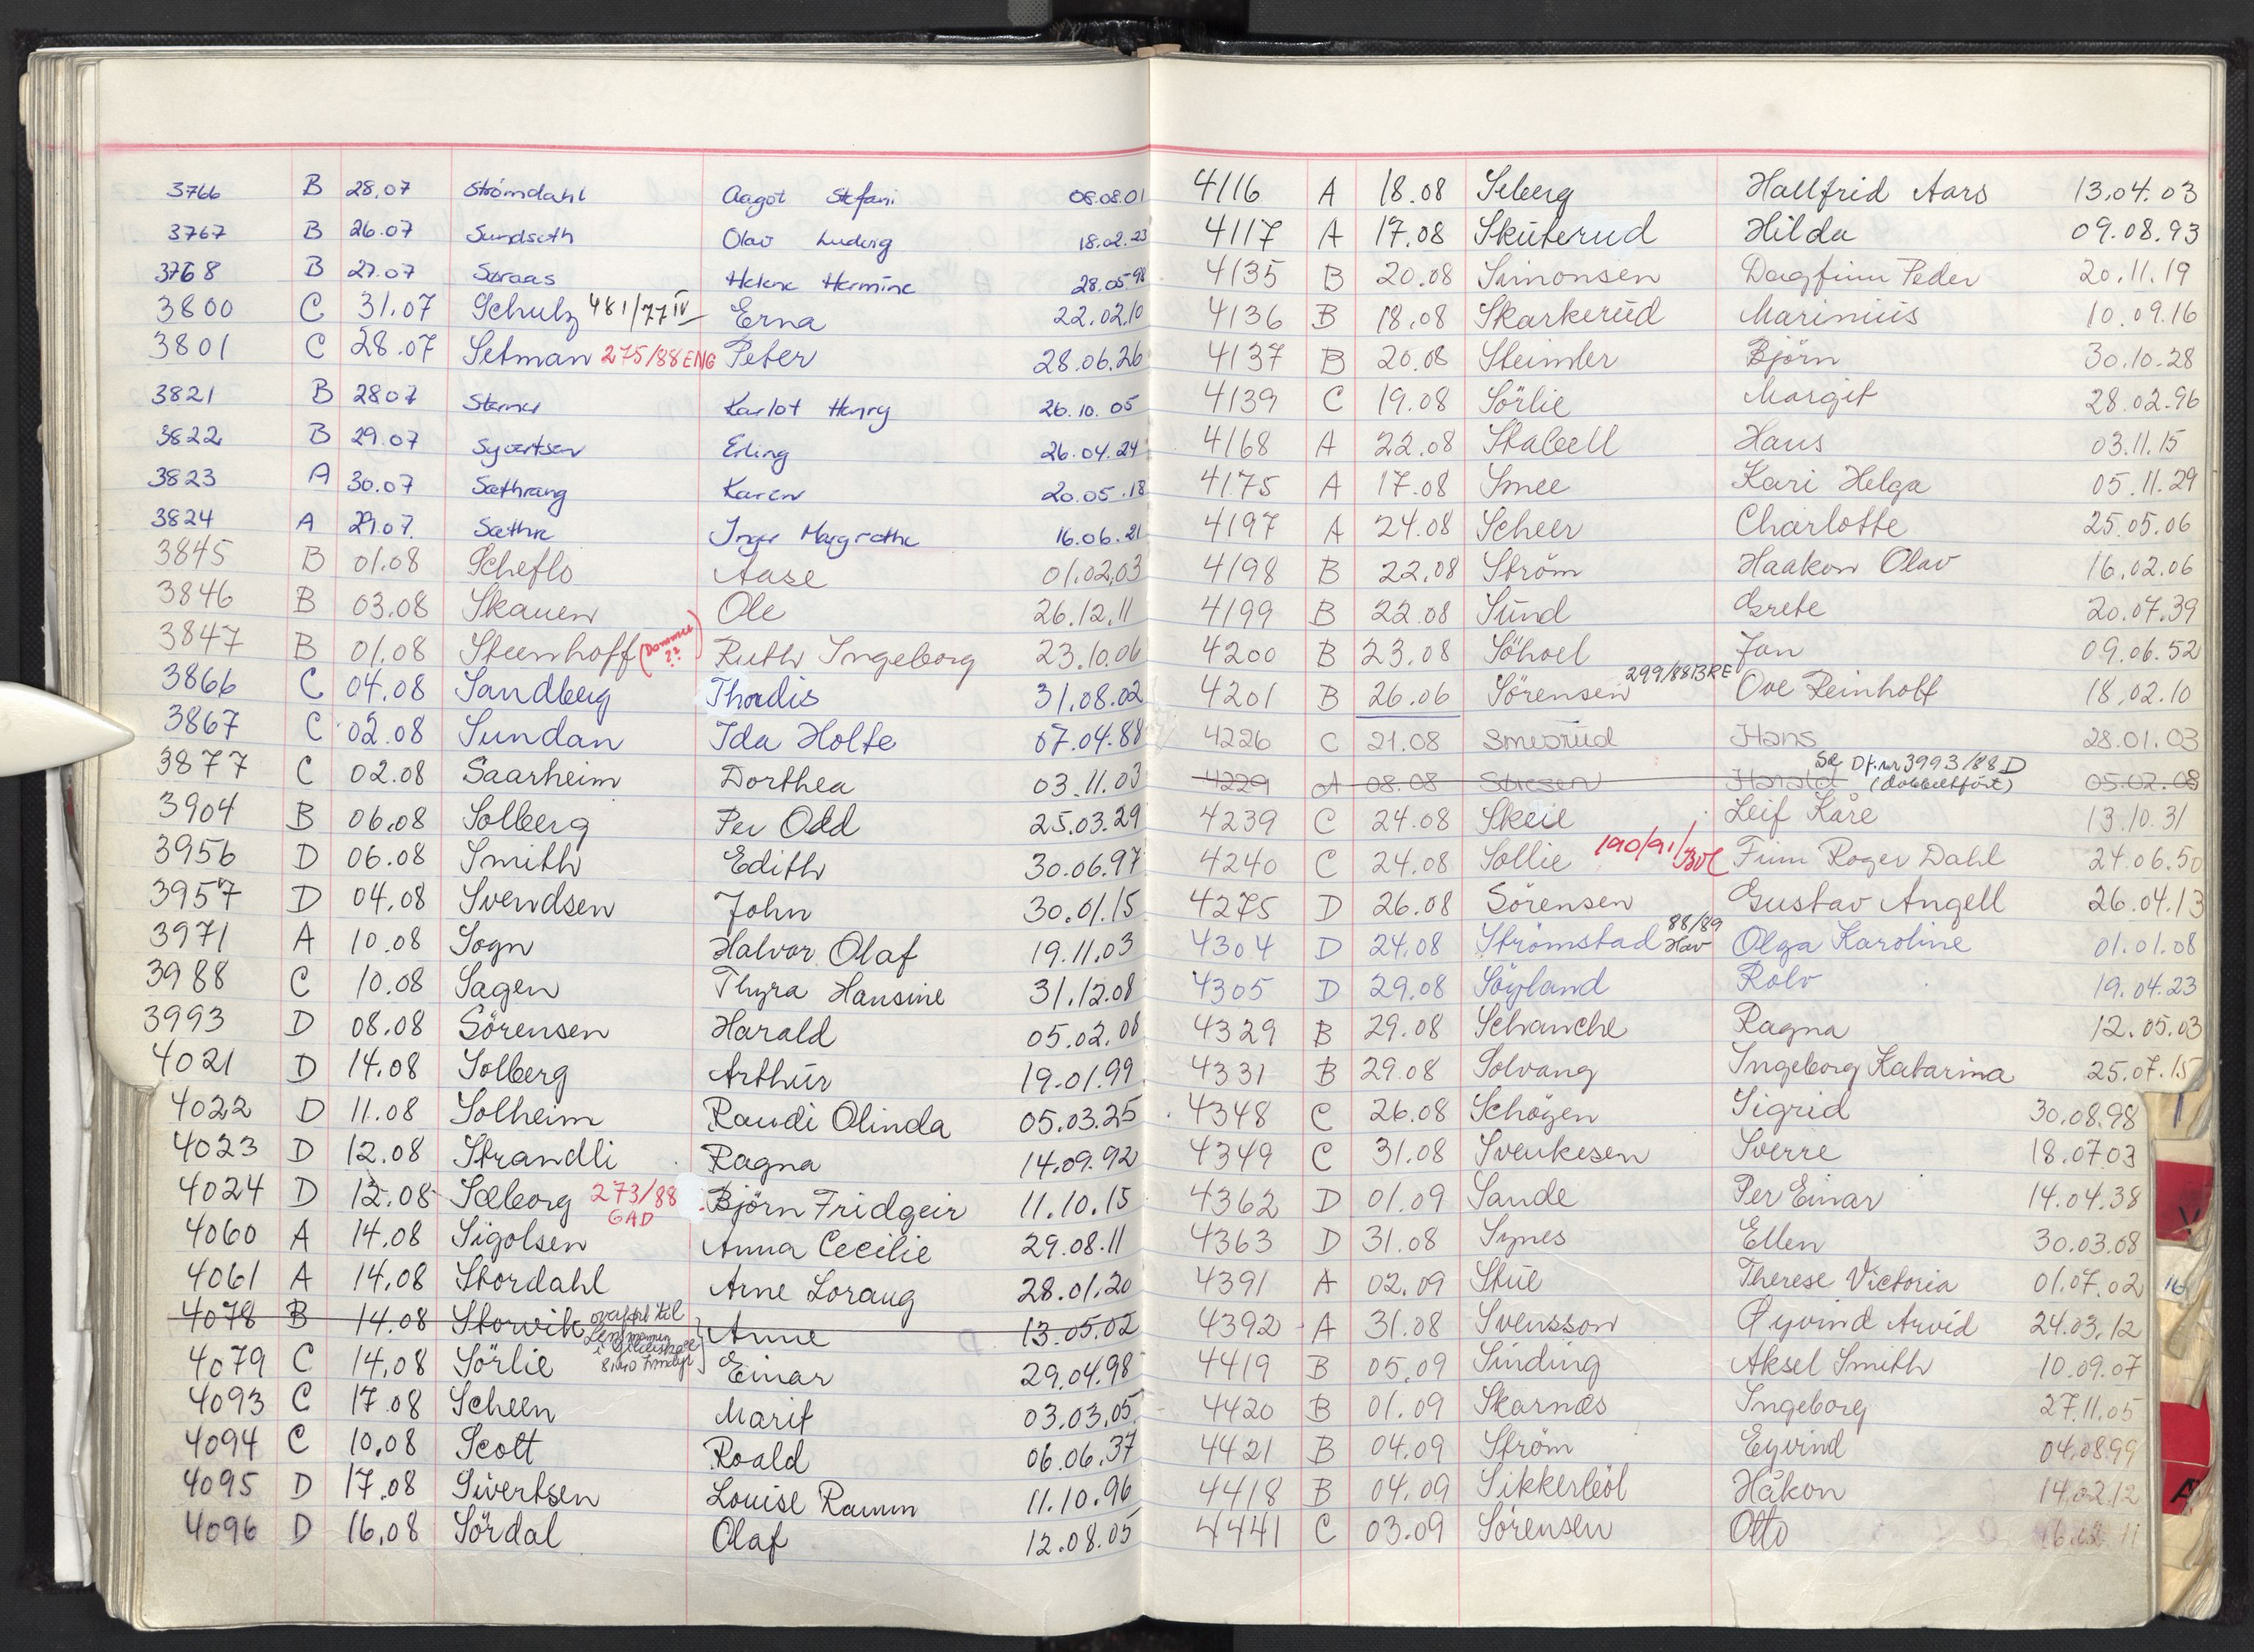 3766 B 28.07 Strömdahl Aagot Stefani 08.08.01
3767 B 26.07 Sundseth Olav Ludvig 18.02.23
3768 B 27.07 Søraas Helene Hermine 28.05.98
3800 C 31.07 Schulz 481/77 IV Erna 22.02.10
3801 C 28.07 Setman 275/88 ENG Peter 28.06.26
3821 B 28 07 Stener Karlot Henry 26.10.05
3822 B 29.07 Syvertsen Erling 26.04.24
3823 A 30.07 Sæthrang Karen 20.05.18
3824 A 29.07. Sæthre Inger Margrethe 16.06.21
3845 B 01.08 Scheflo Aase 01.02.03
3846 B 03.08 Skauen Ole 26.12.11
3847 B 01.08 Steenhoff (Dommer ??) Ruth Ingeborg 23.10.06
3866 C 04.08 Sandberg Thordis 31.08.02
3867 C 02.08 Sundan Ida Holte 07.04.88
3877 C 02.08 Saarheim Dorthea 03.11.03
3904 B 06.08 Solberg Per Odd 25.03.29
3956 D 06.08 Smith Edith 30.06.97
3957 D 04.08 Svendsen John 30.01.15
3971 A 10.08 Sogn Halvor Olaf 19.11.03
3988 C 10.08 Sagen Thyra Hansine 31.12.08
3993 D 08.08 Sörensen Harald 05.02.08
4021 D 14.08 Solberg Arthur 19.01.99
4022 D 11.08 Solheim Randi Olinda 05.03.25
4023 D 12.08 Strandli Ragna 14.09.92
4024 D 12.08 Sæborg 273/88 GAD Björn Fridgeir 11.10.15
4060 A 14.08 Sigolsen Anna Cecilie 29.08.11
4061 A 14.08 Stordahl Arne Loraug 28.01.20
4078 B 14.08 Storvik overført til Lensmannen i Gildeskål Anne 13.05.02
4079 C 14.08 Sörlie Einar 29.04.98
4093 C 17.08 Scheen Marit 03.03.05
4094 C 10.08 Scott Roald 06.06.37
4095 D 17.08 Sivertsen Louise Ramm 11.10.96
4096 D 16.08 Sördal Olaf 12.08.05
4116 A 18.08 Seberg Hallfrid Aars 13.04.03
4117 A 17.08 Skuterud Hilda 09.08.93
4135 B 20.08 Simonsen Dagfinn Peder 20.11.19
4136 B 18.08 Skarkerud Marinius 10.09.16
4137 B 20.08 Steimler Björn 30.10.28
4139 C 19.08 Sörlie Margit 28.02.96
4168 A 22.08 Stabell Hans 03.11.15
4175 A 17.08 Smee Kari Helga 05.11.29
4197 A 24.08 Scheer Charlotte 25.05.06
4198 B 22.08 Ström Haakon Olav 16.02.06
4199 B 22.08 Sund Grete 20.07.39
4200 B 23.08 Söhoel Jan 09.06.52
4201 B 26.06 Sörensen 299/88 BRE Ove Reinholt 18.02.10
4226 C 21.08 Smerud Hans 28.01.03
Se Df.nr 3993/88 D
4229 A 08.08 Harald (dobbeltført) 05.02.08
4239 C 24.08 Skeie Leif Kåre 13.10.31
4240 C 24.08 Sollie 190/91/ Finn Roger Dahl 24.06.50
4275 D 26.08 Sörensen Gustav Angell 26.04.13
4304 D 24.08 Strömstad 88/89 Hav Olga Karoline 01.01.08
4305 D 29.08 Söyland Rolv 19.04.23
4329 B 29.08 Schanche Ragna 12.05.03
4331 B 29.08 Solvang Ingeborg Katarina 25.07.15
4348 C 26.08 Schöyen Sigrid 30.08.98
4349 C 31.08 Svenkesen Sverre 18.07 03
4362 D 01.09 Sande Per Einar 14.04.38
4363 D 31.08 Synes Ellen 30.03.08
4391 A 02.09 Stue Therese Victoria 01.07.02
4392 A 31.08 Svensson Øyvind Arvid 24.03.12
4419 B 05.09 Sinding Aksel Smith 10.09.07
4420 B 01.09 Skarnæs Ingeborg 27.11.05
4421 B 04.09 Ström Eyvind 04.08.99
4418 B 04.09 Sikkerböl Håkon 14.02.12
4441 C 03.09 Sörensen Otto